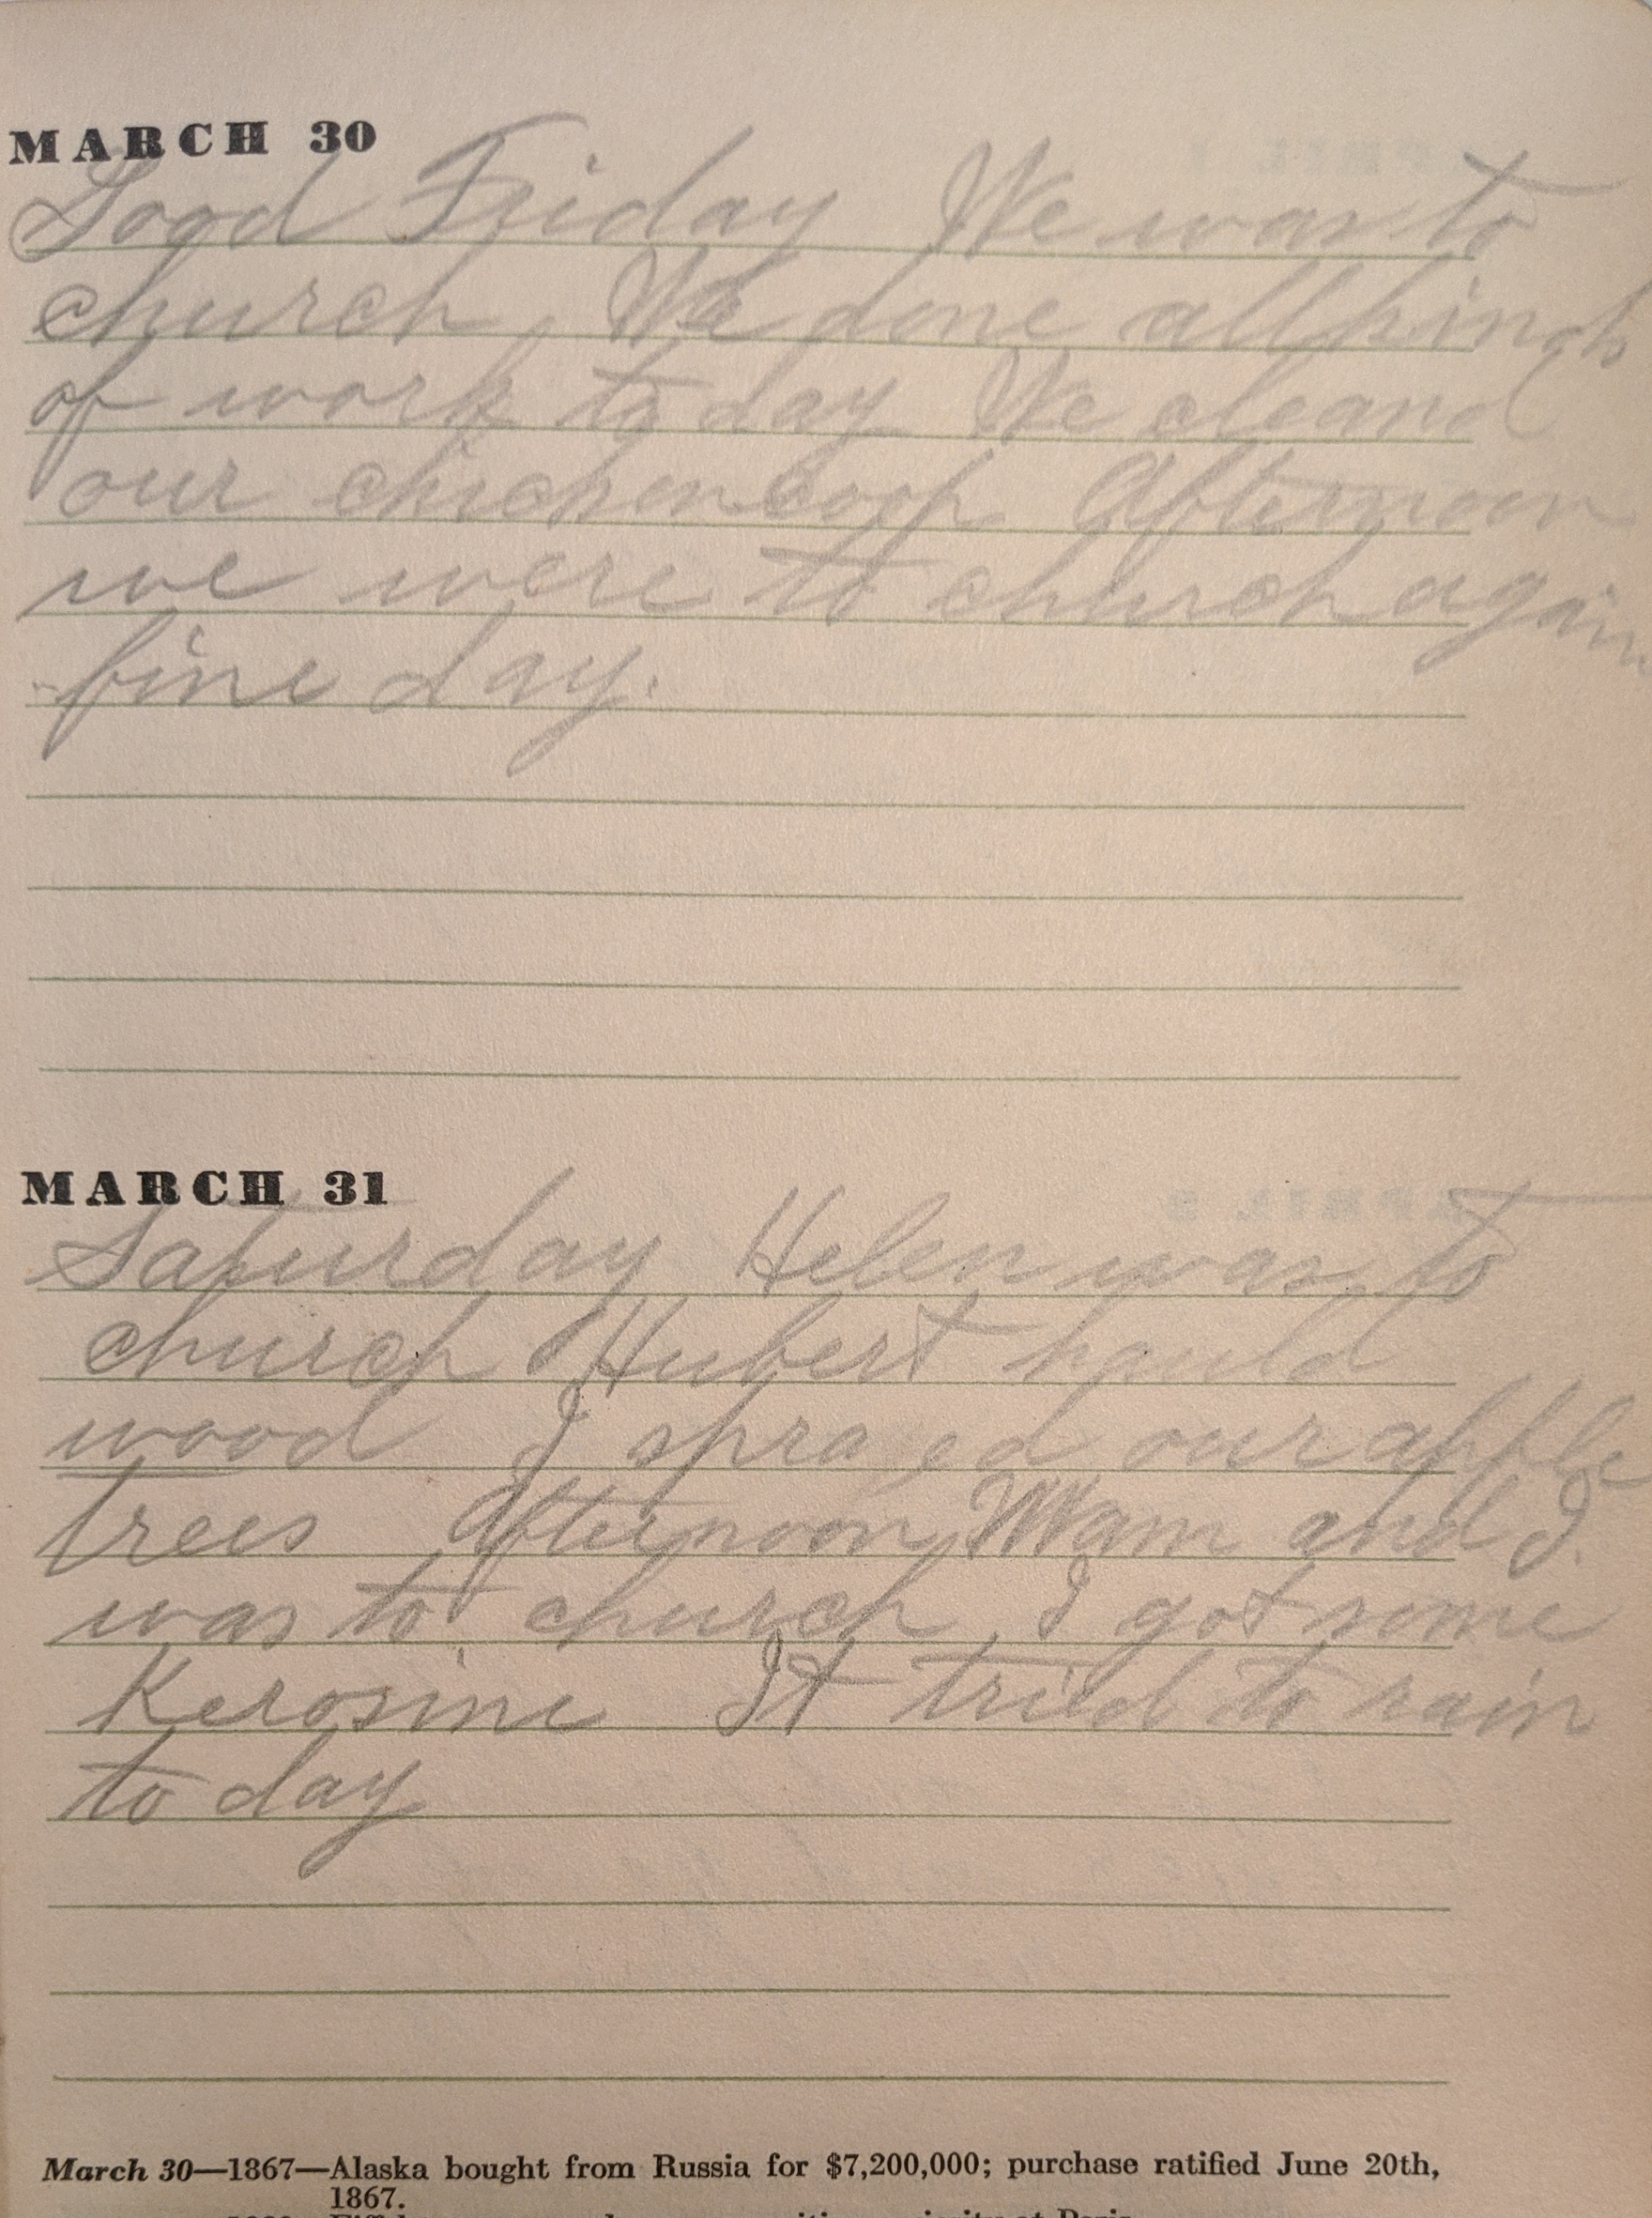 MARCH 30
Good Friday We was to
church, We done all kinds
of work to day We cleand
our chickencoop Afternoon
we were to church again
fine day.
MARCH 31
Saturday Helen was to
church Hubert hauld
wood I sprayed our apple
trees Afternoon Mam and I
was to church I got some
Kerosine It tried to rain
to day
March 30—1867—Alaska bought from Russia for $7,200,000; purchase ratified June 20th,
1867.